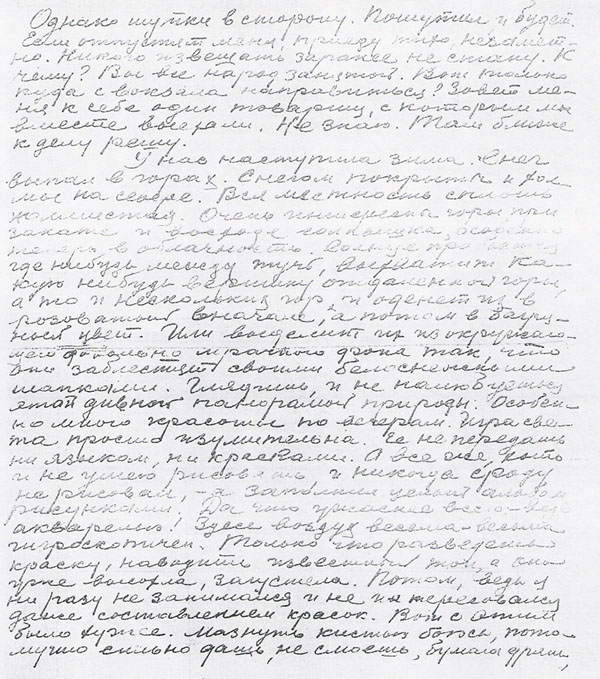 Однако шутки в сторону. Пошутил и будет.
Если отпустят меня, приеду тихо, незамет-
но. Никого извещать заранее не стану. К
чему? Вы все народ занятой. Вот только
куда с вокзала направиться? Зовет ме-
ня к себе один товарищ, с которым мы
вместе воевали. Не знаю. Там ближе
к делу решу.
У нас наступила зима. Снег
выпал в горах. Снегом покрыты и хол-
мы на севере. Вся местность сплошь
холмистая. Очень интересны горы при
закате и восходе солнышка, особенно
теперь в облачность. Солнце
где нибудь между туч, выхватит ка-
кую нибудь вершину отдаленной горы,
а то и нескольких гор, и оденет их в
розоватый вначале, а потом в багря-
ный цвет. Или выделит их из окружаю-
щего довольно мрачного фона так, что
они заблестят своими белоснежными
шапками. Глядишь, и не налюбуешься
этой дивной панорамой природы. Особен-
но много красоты по вечерам. Игра све-
та просто изумительна. Ее не передашь
ни языком, ни красками. А все же, хоть
и не умею рисовать и никогда сроду
не рисовал, - я заполнил целый альбом
рисунками. Да что ужаснее всего - ведь
акварелью! Здесь воздух весьма-весьма
гигроскопичен. Только что разведешь
краску, наводить известный тон, а она
уже высохла, загустела. Потом, ведь я
ни разу не занимался и не интересовался
даже составлением красок. Вот с этим
было хуже. Мазнуть кистью боюсь, пото-
му что сильно дашь, не смоешь, бумага дрянь,